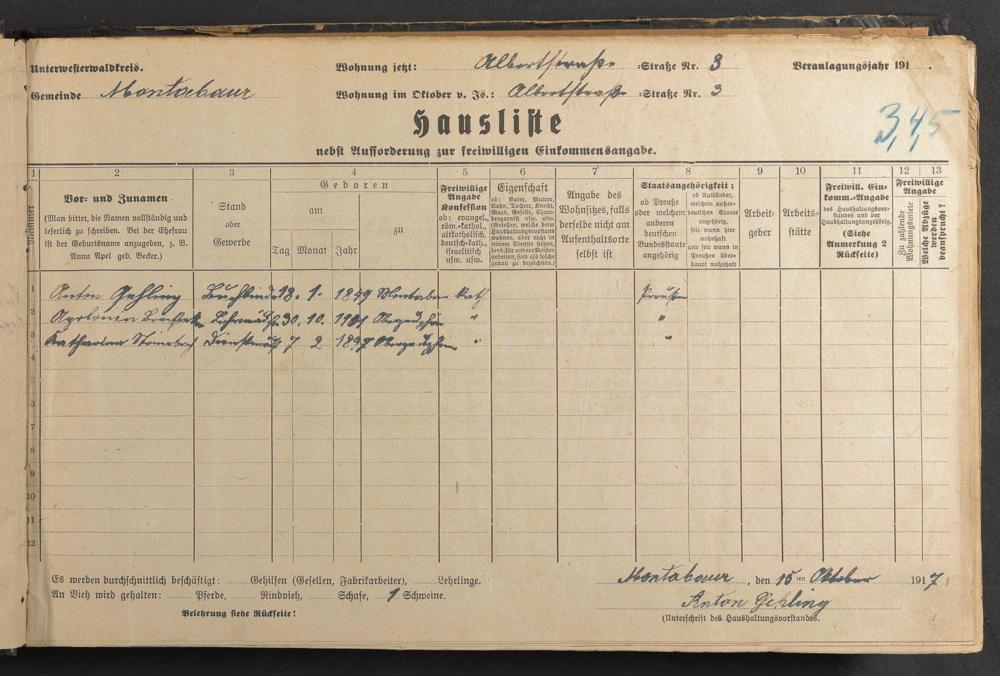 Unterwesterwaldkreis. Wohnung jetzt: Albertstraße -Straße Nr. 3 Veranlagungsjahr 191 .
Gemeinde Montabaur Wohnung im Oktober v. Js.: Albertstraße -Straße Nr. 3
3,4,5
Hausliste
nebst Aufforderung zur freiwilligen Einkommensangabe.
1 2 3 4 5 6 7 8 9 10 11 12 13
Nummer
Vor- und Zunamen
(Man bittet, die Namen vollständig und
leserlich zu schreiben. Bei der Ehefrau
ist der Geburtsname anzugeben, z. B.
Anna Apel geb. Becker.)
Stand
oder
Gewerbe
Geboren
am
zu
Tag Monat Jahr
Freiwillige
Angabe
Konfession
ob: evangel.,
röm.-kathol.,
altkatholisch,
deutsch-kath.,
israelitisch
usw. usw.
Eigenschaft
ob: Vater, Mutter,
Sohn, Tochter, Knecht,
Magd, Geselle, Cham-
bregarnist usw. usw.
(Gesellen, welche beim
Haushaltungsvorstand
wohnen, aber nicht in
seinem Dienste stehen,
sond. für andere Meister
arbeiten, sind als solche
genau zu bezeichnen.)
Angabe des
Wohnsitzes, falls
derselbe nicht am
Aufenthaltsorte
selbst ist
Staatsangehörigkeit:
ob Preuße
oder welchem
anderen
deutschen
Bundesstaate
angehörig
ob Ausländer,
welchem außer-
deutschen Staate
angehörig,
seit wann hier
wohnhaft
und
seit wann in
Preußen über-
haupt wohnhaft
Arbeit-
geber
Arbeits-
stätte
Freiwill. Ein-
komm.-Angabe
des Haushaltungsvor-
standes und der
Haushaltungsangehörig.
(Siehe
Anmerkung 2
Rückseite)
Freiwillige
Angabe
Zu zahlende
Wohnungsmiete
Welche Abzüge
werden
beansprucht?
1 Anton Gehling 18. 1. 1849 Montabaur kath Preuße
2 Apolonia 30. 10. 1901 " "
3 Katharina 7 2 1897 " "
4
5
6
7
8
9
10
11
12
Es werden durchschnittlich beschäftigt: Gehilfen (Gesellen, Fabrikarbeiter), Lehrlinge.
An Vieh wird gehalten: Pferde, Rindvieh, Schafe, 1 Schweine.
Belehrung siehe Rückseite!
Montabaur, den 15 ten Oktober 1917
Anton Gehling
(Unterschrift des Haushaltungsvorstandes.